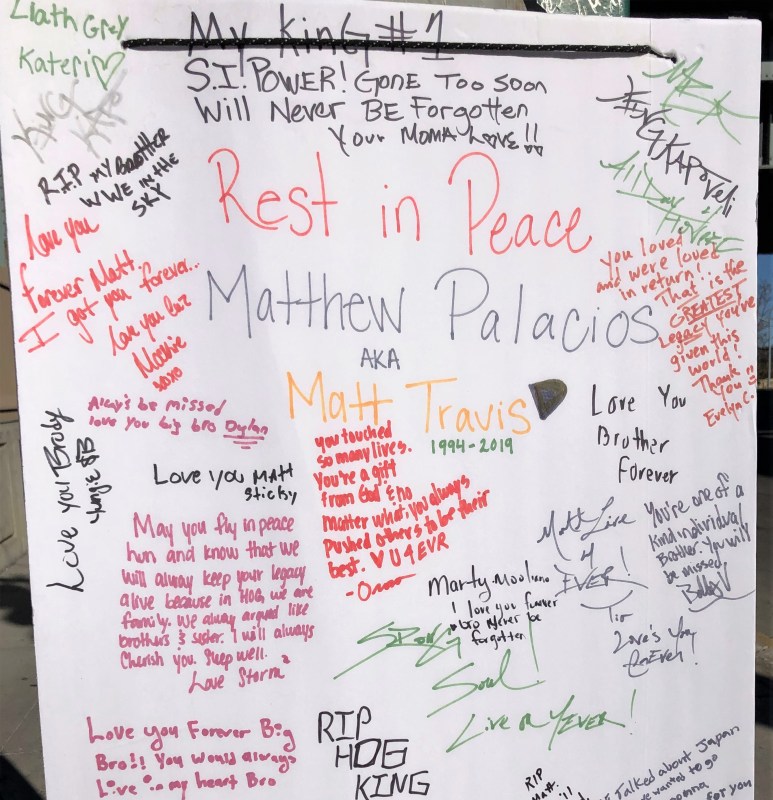 Liath Grey
Kateri♡
My King #1
S.I. POWER! Gone Too Soon
Will Never BE Forgotten
Your MOMA Love!!
KING
R.I.P MY BROTHER
WWE IN THE
SKY
KINGKAPOVeli
All Day
Rest in Peace
Matthew Palacios
AKA
Matt Travis
1994-2019
love you
forever Matt.
I got you forever...
love you
xoxo
You loved
and were loved
in return!
That is the
GREATEST
Legacy you've
given this
world!
Thank
you
Evelyn C.
Always be missed
love you big bro Dylan
Love you Brody
Love you MATT
Sticky
you touched
so many lives.
You're a gift
from God & no
matter what, you always
pushed others to be their
best. U 4EVR
Love You
Brother
Forever
May you fly in peace
hun and know that we
will alway keep your legacy
alive because in HOG, we are
family. We alway argued like
brothers & sister. I will always
Cherish you. Sleep well.
Love Storm
Matt Live
4
EVER!
Love's You
You're one of a
Kind individual
Brother. You will
be missed.
Marty
I love you forever
bro Never be
forgotten
Strong
Soul!
Live
Love you Forever Big
Bro!! You would always
Live in my heart Bro
RIP
HOG
KING
RIP
MATT
Talked about Japan
wanted to go
for you